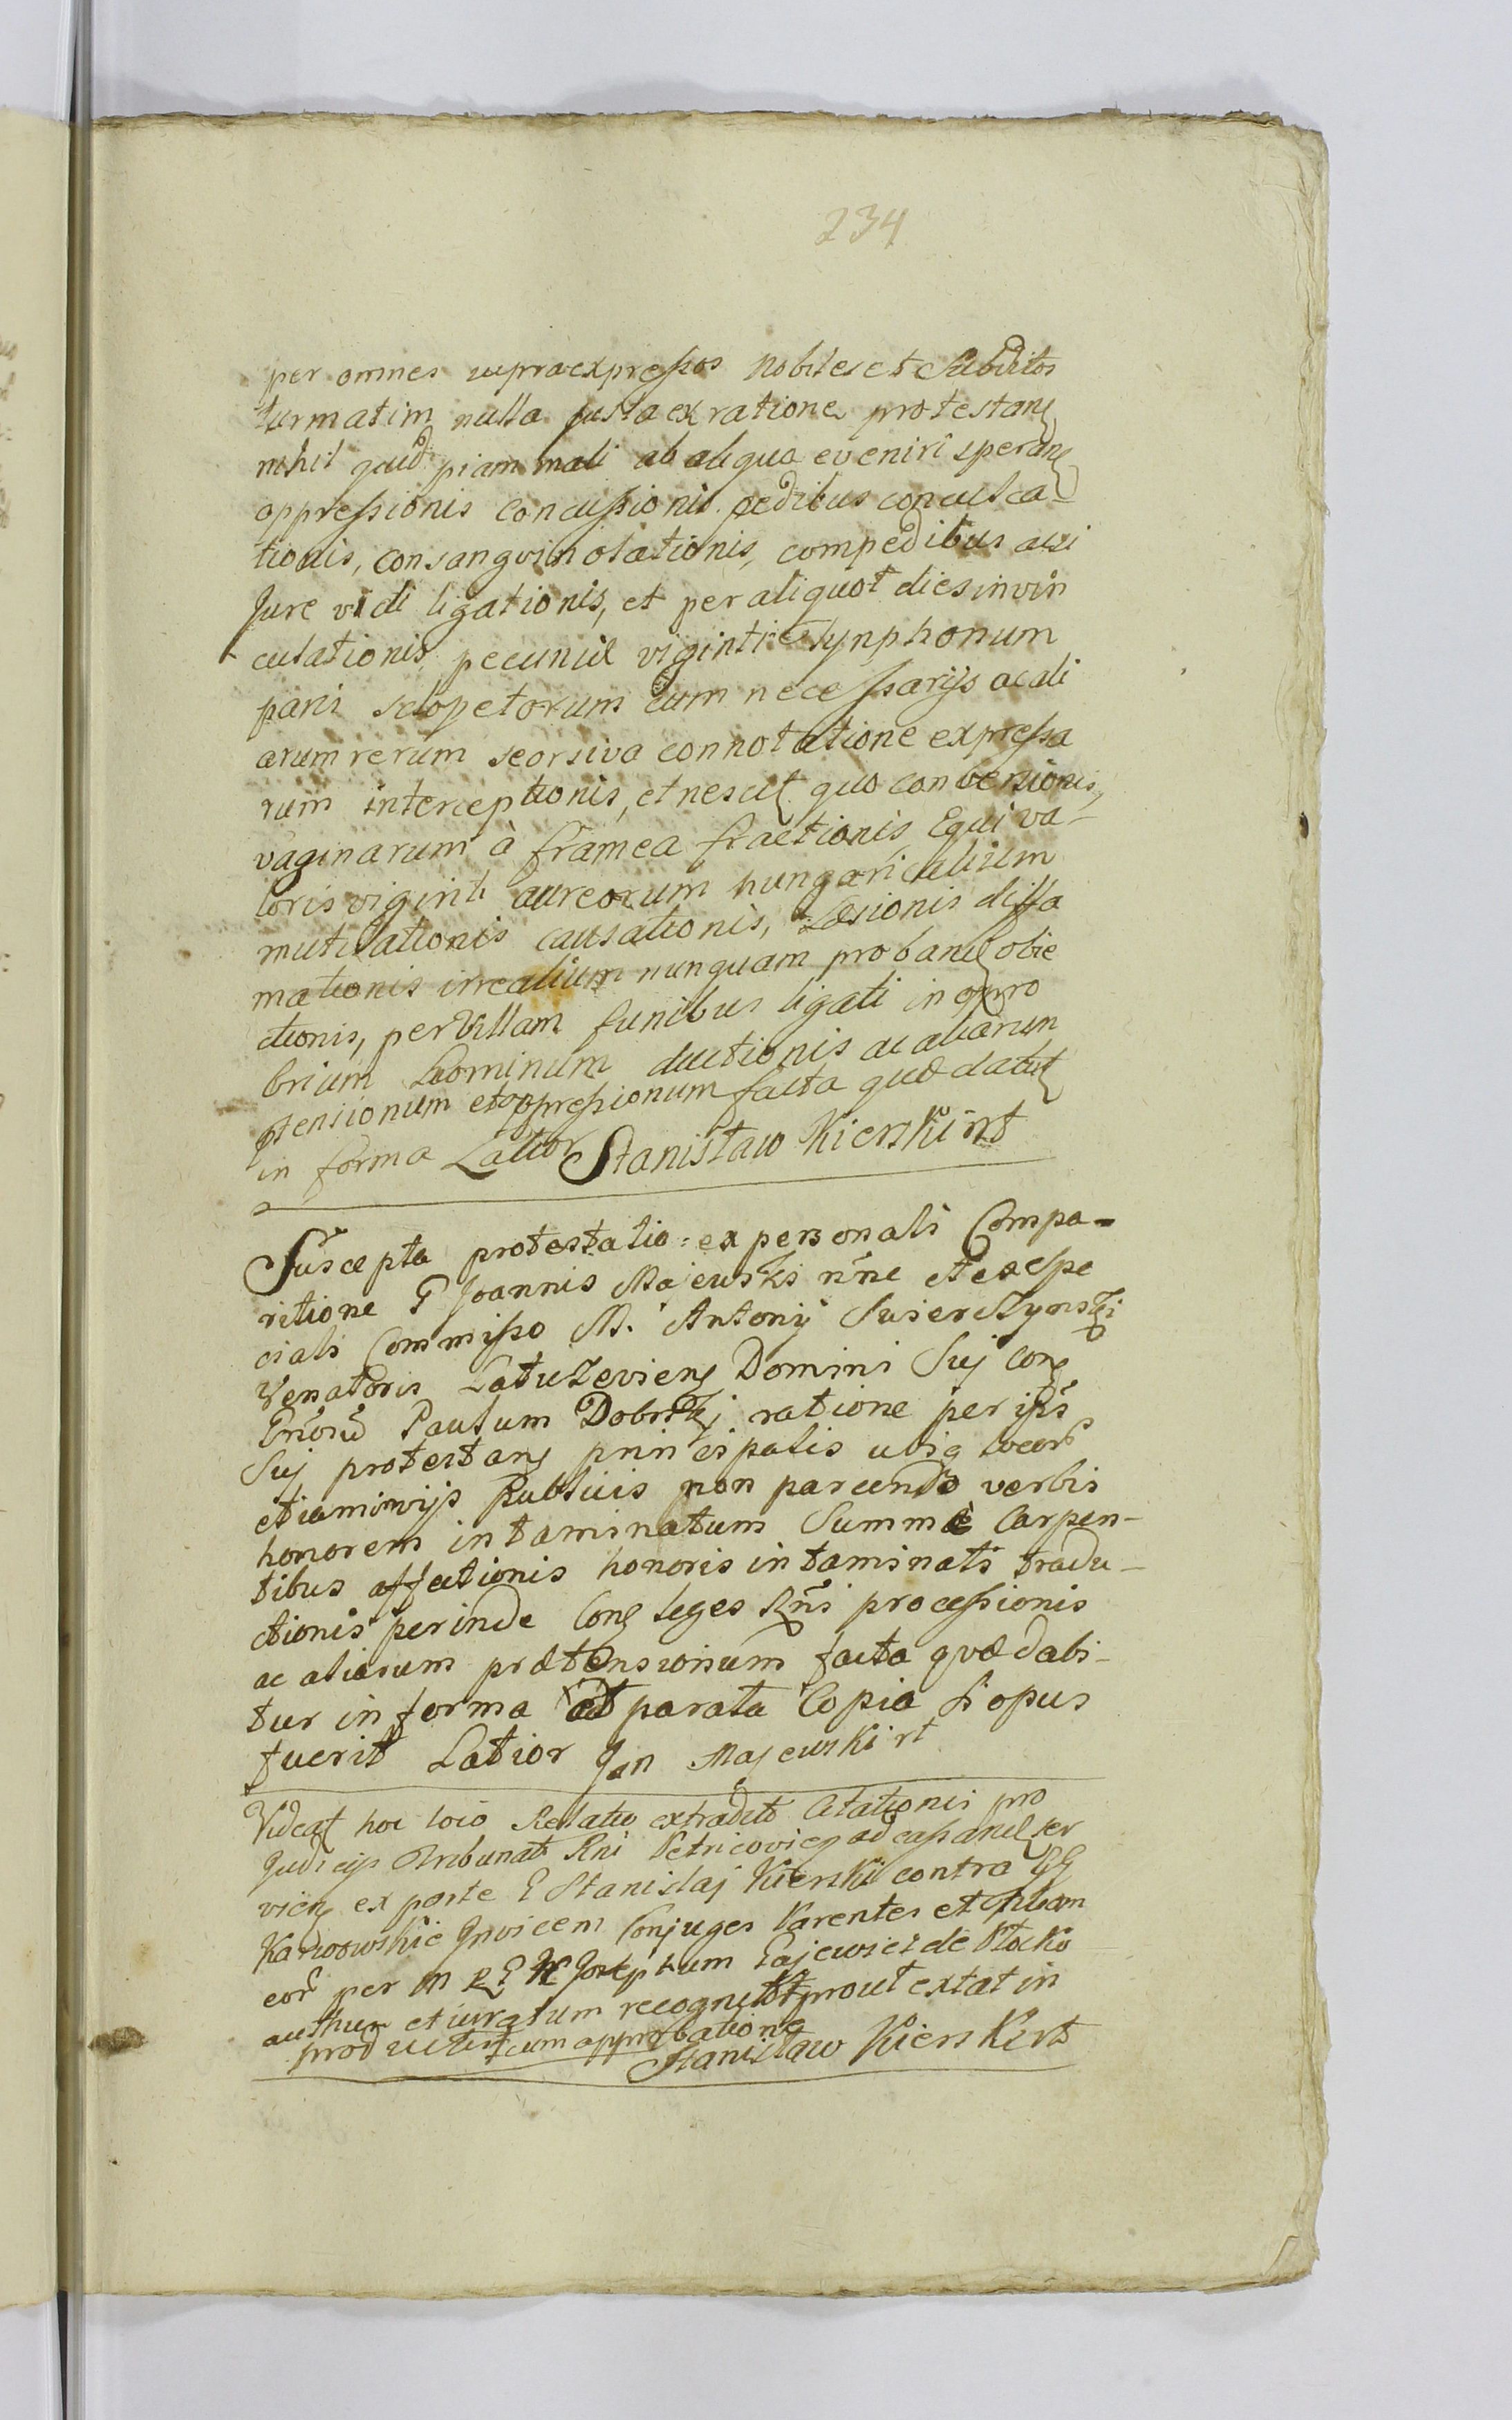 234
per omnes supraexpressos Nobiles et Subditos
turmatim nulla justa ex ratione protestan
nihil quid piam mali ab aliquo eveniri speran
oppressionis concussionis pedibus conculca-
tionis, consangvinolationis, compedibus acsi
Jure vi di ligationis, et per aliquot dies invin
culationis, pecuniæ viginti Tynphonum
paris sclopetorum cum necessarijs ac ali
arum rerum seorsiva connotatione expressa
rum interceptionis, et nescit quo conversionis,
vaginarum à framea fractionis Equi va-
loris viginti aureorum hungaricalium
mutilationis causationis, Læsionis diffa
mationis irrealium nunquam proband obie
ctionis, per Villam funibus ligati in oppro
brium hominum ductionis ac aliarum
ptensionum et oppressionum facta quæ dabit
in forma Latior Stanisław Kierski rt
Suscepta protestatio ex personali Compa-
ritione G Joannis Majewski nne et ex spe
ciali Commisso M. Antonij Swierczynski
Venatoris Latyczevien Domini Suj con
Gnosu Paulum Dobrski ratione per ips
Suj protestan principalis ubiq locor
etiam in vijs Publicis non parcendo verbis
honorem intaminatum Summè Carpen-
tibus affectionis honoris intaminati tradu-
ctionis perinde Con leges Rni processionis
ac aliarum prætensionum facta quæ dabi-
tur in forma et parata Copia si opus
fuerit Latior Jan Majewski rt
Videat hoc loco Relatio extradit Citationis pro
Judicijs Tribunat Rni Petricovien ad cassand ser
vien ex parte G Stanislaj Kierski contra GG
Karwowskie Invicem Conjuges Parentes et filiam
eor per M R G Josephum Gajewski de Płocko
authen et juratum recognit prout extat in
product cum approbatione
Stanisław Kierski rt